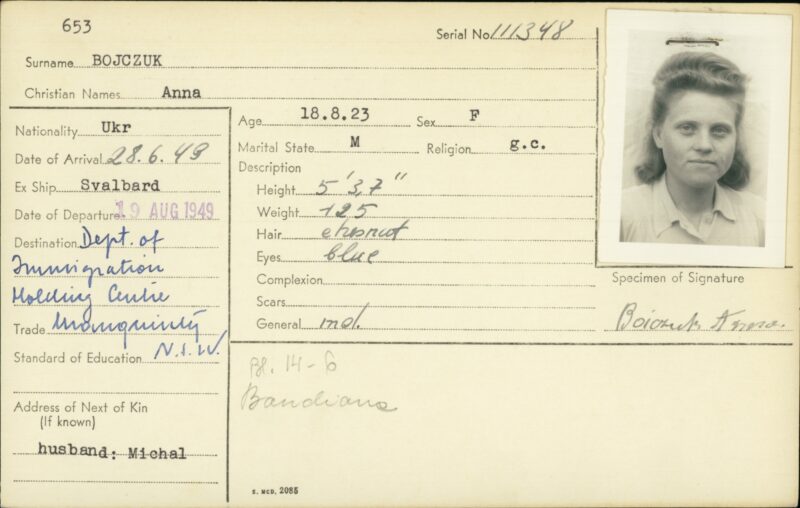 653
Serial No. 111348
Surname BOJCZUK
Christian Names Anna
Nationality Ukr
Date of Arrival 28.6.49
Ex Ship Svalbard
Date of Departure 19 AUG 1949
Destination Dept. of
Immigration
Holding Centre
Trade Uranquinty
Standard of Education N.S.W.
Address of Next of Kin
(If known)
husband: Michal
Age 18.8.23 Sex F
Marital State M Religion g.c.
Description
Height 5' 3,7"
Weight 125
Hair chesnut
Eyes blue
Complexion
Scars
General md.
Specimen of Signature
Boiczuk Anna.
Bl. 14-6
Bandiana
S. MCD. 2085